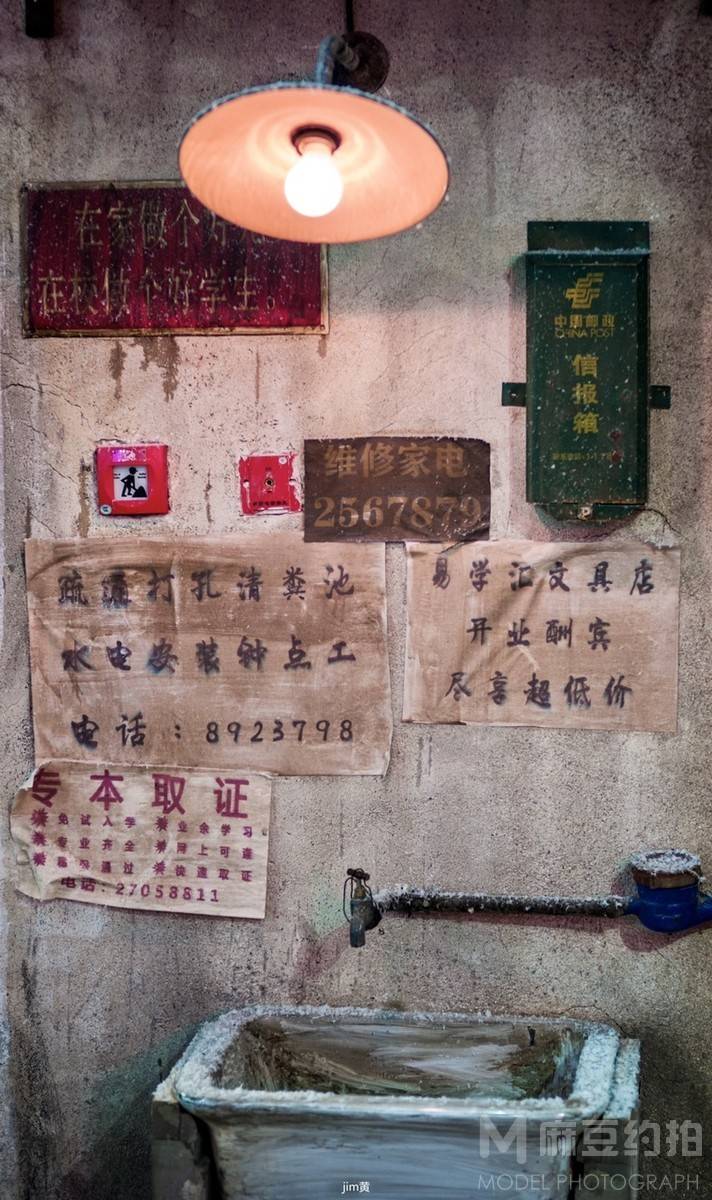 在家做个好
在校做个好学生。
中国邮政
CHINA POST
信报箱
维修家电
2567879
疏通打孔清粪池
水电安装钟点工
电话：8923798
易学汇文具店
开业酬宾
尽享超低价
专本取证
免试入学 业余学习
专业齐全 网上可查
通过 快速取证
电话：27058811
M 麻豆约拍
MODEL PHOTOGRAPH
jim黄